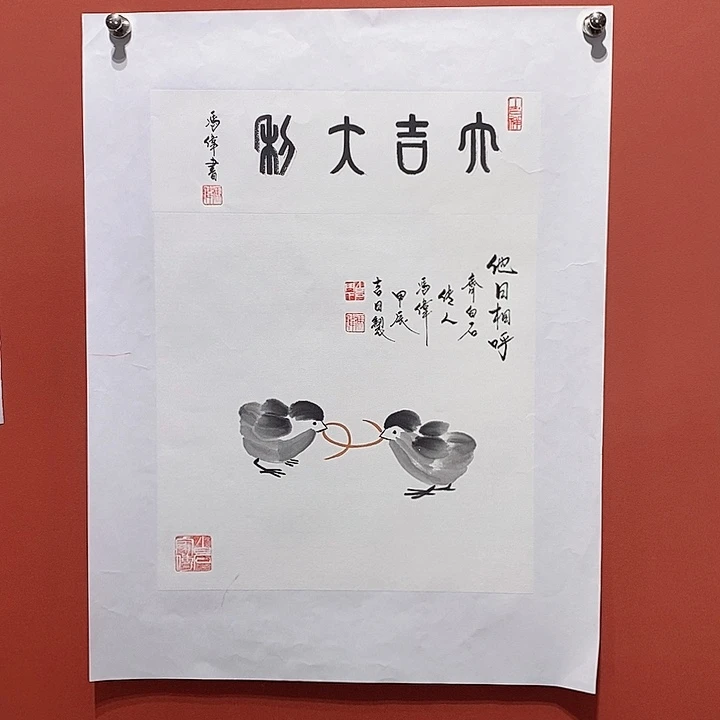 大吉大利
馮偉書
他日相呼
齊白石
傳人
馮偉
甲辰
吉日製